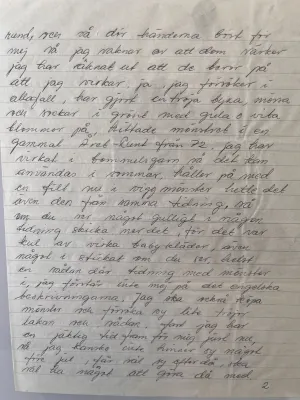 rund, och så dör händerna bort för
mej så jag vaknar av att dom värker
jag har räknat ut att de beror på
att jag virkar, ja, jag försöker i
allafall, har gjort en tröja lyka, mössa
och vokar i grönt med gula o vita
blommor på. Hittade mönstret i en
gammal Året-Runt från 72, jag har
virkat i bomullsgarn så det kan
användas i sommar. Håller på med
en filt nu i vågmönster hette det
även den från samma tidning, så
om du ser något gulligt i någon
tidning skicka mer det, för det var
kul av virka babykläder, även
något i stickat om du ser helst
en sådan där tidning med mönster
i, jag förstår inte mej på det engelska
beskrivningarna. Jag ska också köpa
mönster och försöka sy lite tröjor
lakan och sådan. fast jag har
en jäktig tid fram för mig just nu,
så jag kanske inte hinner sy något
före jul, får väl sy efteråt, ska
väl ha något att göra då med
2